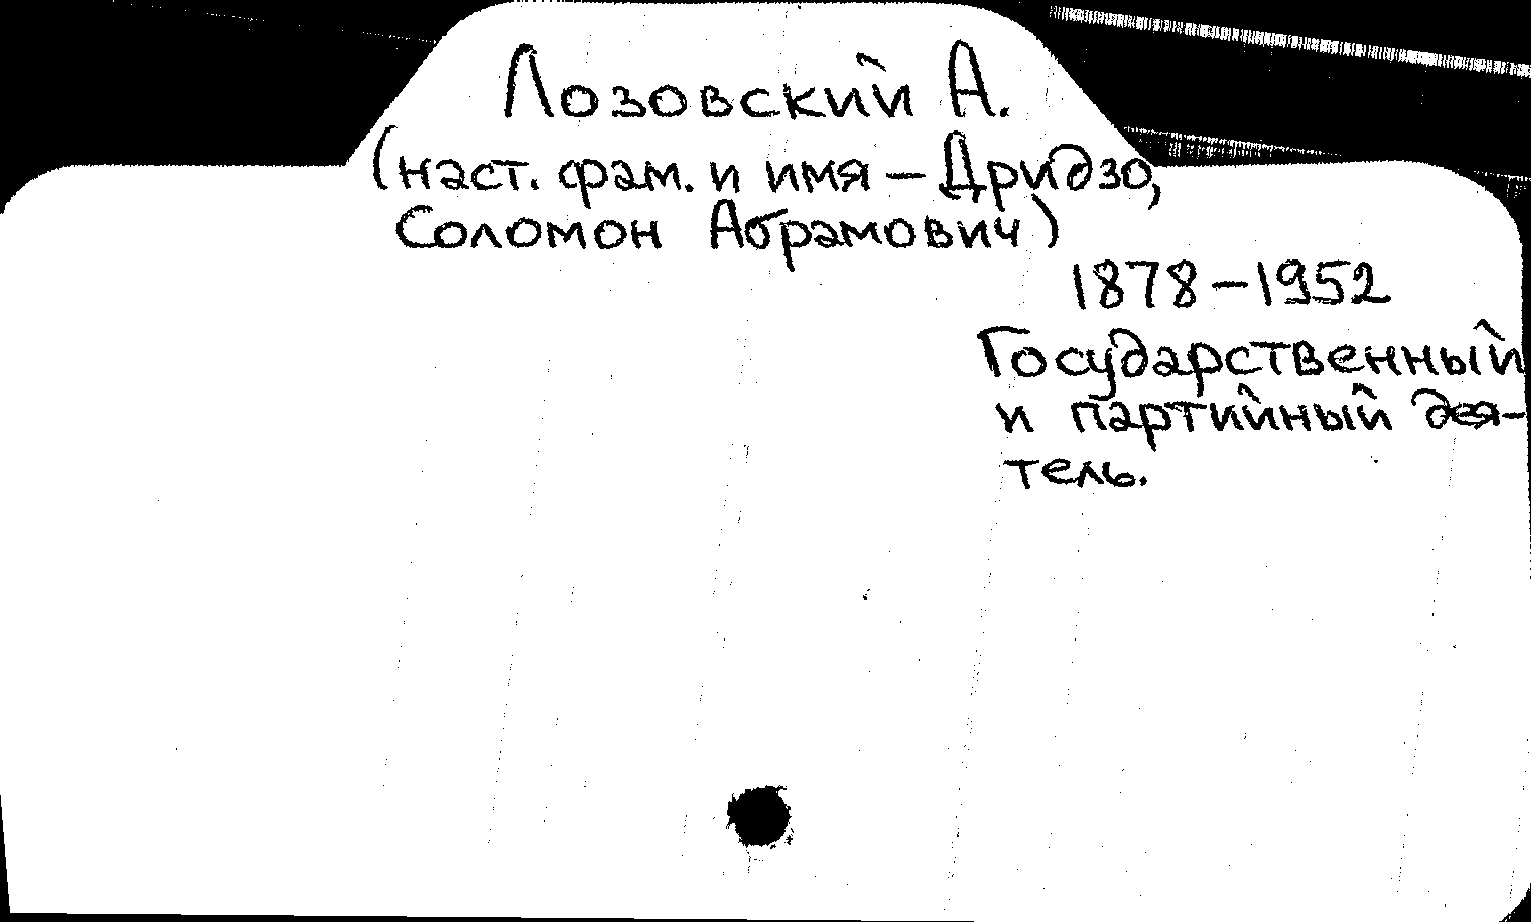 Лозовский А.
(наст. фам. и имя – Дридзо,
Соломон Абрамович)
1878–1952
Государственный
и партийный дея-
тель.